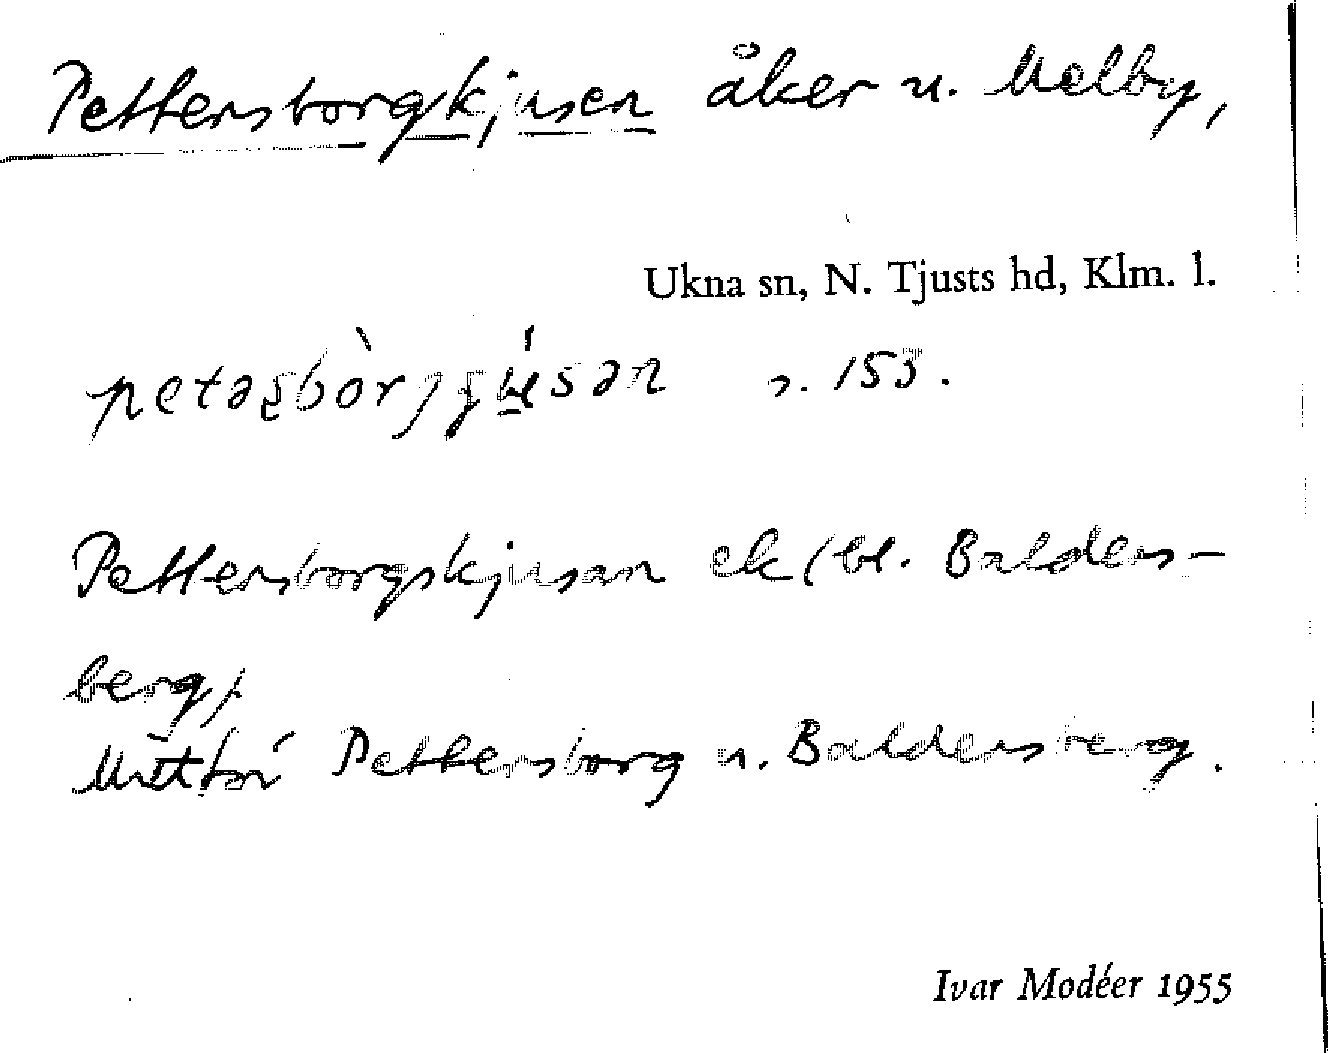 Pettersborgskjusen åker u. Melby,
Ukna sn, N. Tjusts hd, Klm. l.
s. 153.
Pettersborgskjusan ek (bl. Balders-
berg,
Pettersborg u. Baldersberg.
Ivar Modéer 1955